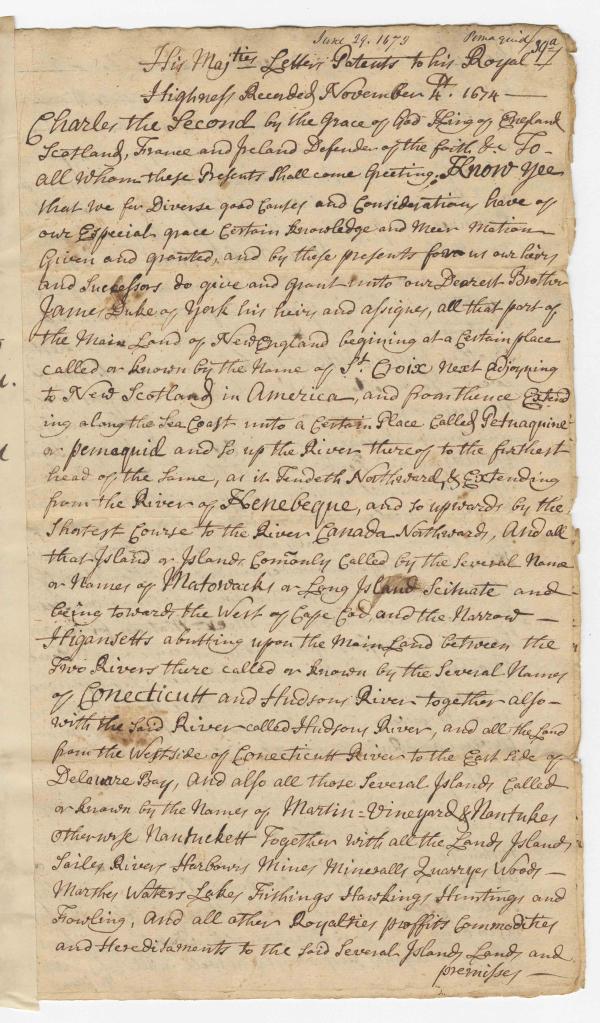 June 29. 1673 Pemaquid
His Maj.ties Letters Patents to his Royal
Highness Recorded November 4th. 1674 —
Charles the Second by the Grace of God King of England
Scotland, France and Ireland Defender of the faith &c To-
all whom these Presents Shall come Greeting, Know yee
that we for Diverse good Causes and Considerations have of
our Especial grace Certain knowledge and Meer Motion
Given and granted, and by these presents for us our heirs
and Successors do give and grant unto our Dearest Brother
James Duke of York his heirs and assignes, all that part of
the Main Land of New England begining at a Certain place
called or known by the Name of St. Croix next adjoyning
to New Scotland in America, and from thence Extend
ing along the Sea Coast unto a Certain Place Called Petuaquine
or pemaquid and so up the River thereof to the furthest
head of the Same, as it Tendeth Northward, & Extending
from the River of Kenebeque, and so upwards by the
Shortest Course to the River Canada Northwards, And all
that Island or Islands Comonly Called by the Several Name
or Names of Matowacks or Long Island Scituate and
being toward the West of Cape Cod, and the Narrow —
Higansetts abutting upon the Main Land between the
Two Rivers there called or known by the Several Names
of Conecticutt and Hudsons River together also -
with the said River called Hudsons River, and all the Land
from the West side of Conecticutt River to the East Side of
Delaware Bay, And also all those Several Islands Called
or known by the Names of Martin=Vineyard & Nantukes
otherwise Nantuckett Together with all the Lands Islands
Soiles Rivers Harbours Mines Mineralls Quarryes Woods —
Marshes Waters Lakes Fishings Hawkings Huntings and
Fowling, And all other Royalties proffits Commodities
and Hereditaments to the said Several Islands Lands and
premisses —